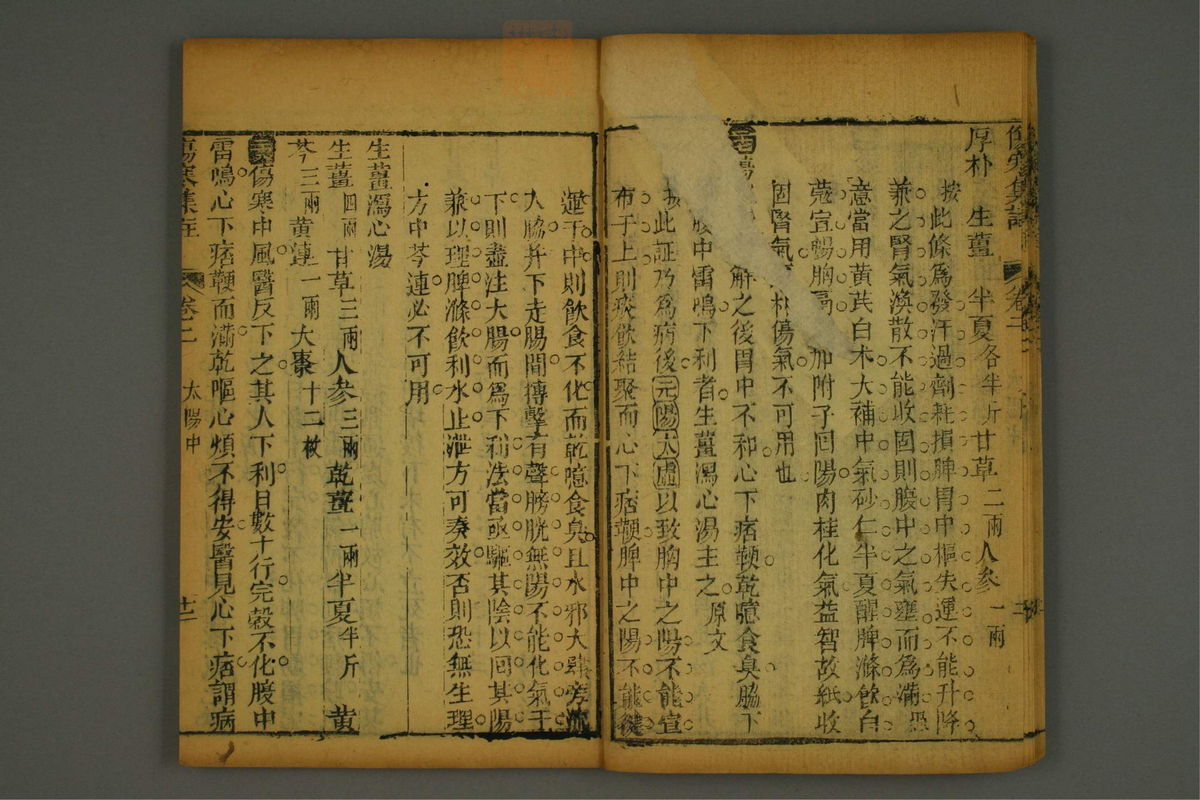 厚朴 生薑 半夏各半斤 甘草二兩 人參一兩
按此條為發汗過劑耗損脾胃中樞失運不能升降
兼之腎氣渙散不能收固則腹中之氣壅而為滿
意當用黃芪白朮大補中氣砂仁半夏醒脾滌飲白
蔻宣暢胸膈加附子回陽肉桂化氣益智故紙收
固腎氣朴傷氣不可用也
解之後胃中不和心下痞鞕乾噫食臭脇下
腹中雷鳴下利者生薑瀉心湯主之原文
按此証乃為病後元陽大虛以致胸中之陽不能宣
布于上則痰飲結聚而心下痞鞕脾中之陽不能健
運于中則飲食不化而乾噫食臭且水邪大肆旁流
入脇并下走腸間摶擊有聲膀胱無陽不能化氣于
下則盡注大腸而為下利法當亟驅其陰以回其陽
兼以理脾滌飲利水止泄方可奏效否則恐無生理
方中芩連必不可用
生薑瀉心湯
生薑四兩 甘草三兩 人參三兩 乾薑一兩 半夏半斤 黃
芩三兩 黃連一兩 大棗十二枚
傷寒中風醫反下之其人下利日數十行完穀不化腹中
雷鳴心下痞鞕而滿乾嘔心煩不得安醫見心下痞謂病
傷寒集註 卷二 太陽中